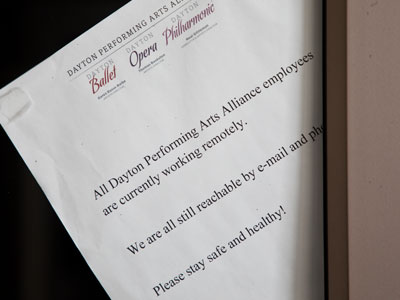 DAYTON PERFORMING ARTS ALL
DAYTON Ballet DAYTON Opera DAYTON Philharmonic
All Dayton Performing Arts Alliance employees
are currently working remotely.
We are all still reachable by e-mail and pho
Please stay safe and healthy!